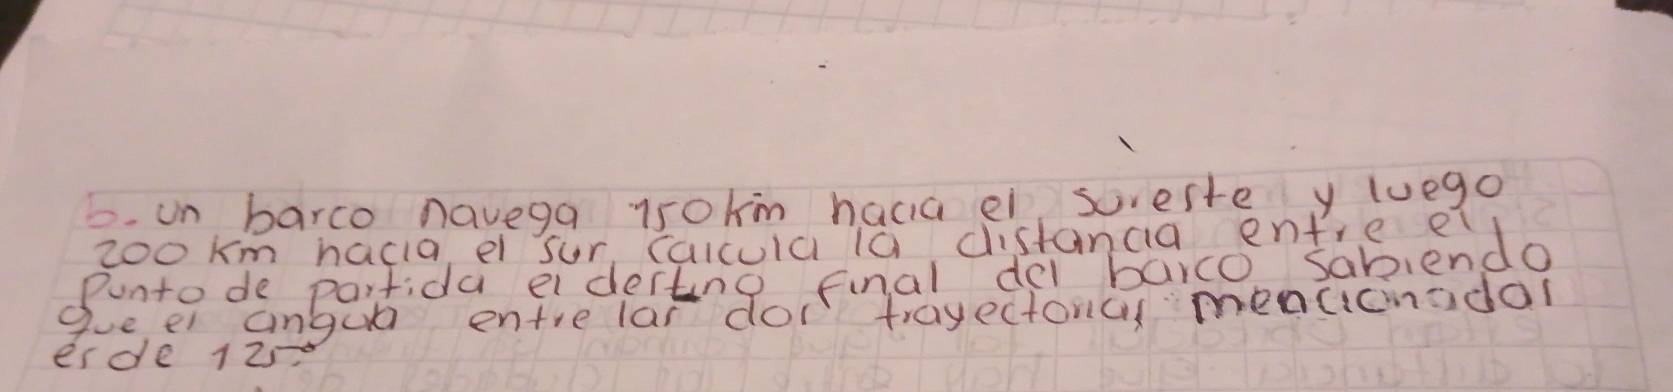 b. un barco navega 150 km hacia el sureste y luego
200 km hacia el sur, calcula la distancia entre el
Punto de partida el destino final del barco sabiendo
que el angulo entre las dos trayectorias mencionadas
es de 125°